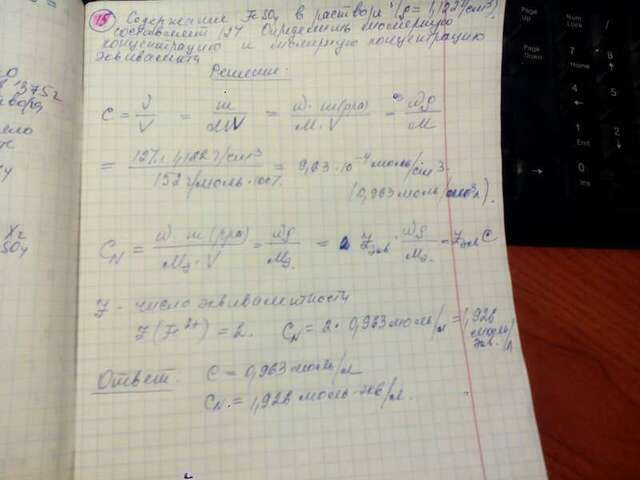 15 Содержание FeSO4 в растворе (ρ = 1,122 г/см3)
составляет 12% Определить молярную
концентрацию и молярную концентрацию
эквивалента
Решение:
C = ν/V = m/MV = w·m(р-ра)/M·V = wρ/M
= 12%·1,122 г/см3 / 152 г/моль · 100% = 9,63·10⁻⁴ моль/см3
(0,963 моль/л).
CN = w·m(р-ра)/Mэ·V = wρ/Mэ = Zэкв · wρ/Mэ = Zэкв C
Z - число эквивалентности
Z(Fe2+) = 2. CN = 2·0,963 моль/л = 1,928 моль экв./л
Ответ. C = 0,963 моль/л
CN = 1,928 моль-экв/л.
3752
твора
SO4
Page Up
Page Down
Num Lock
7 Home
4
1 End
0 Ins
8
5
2